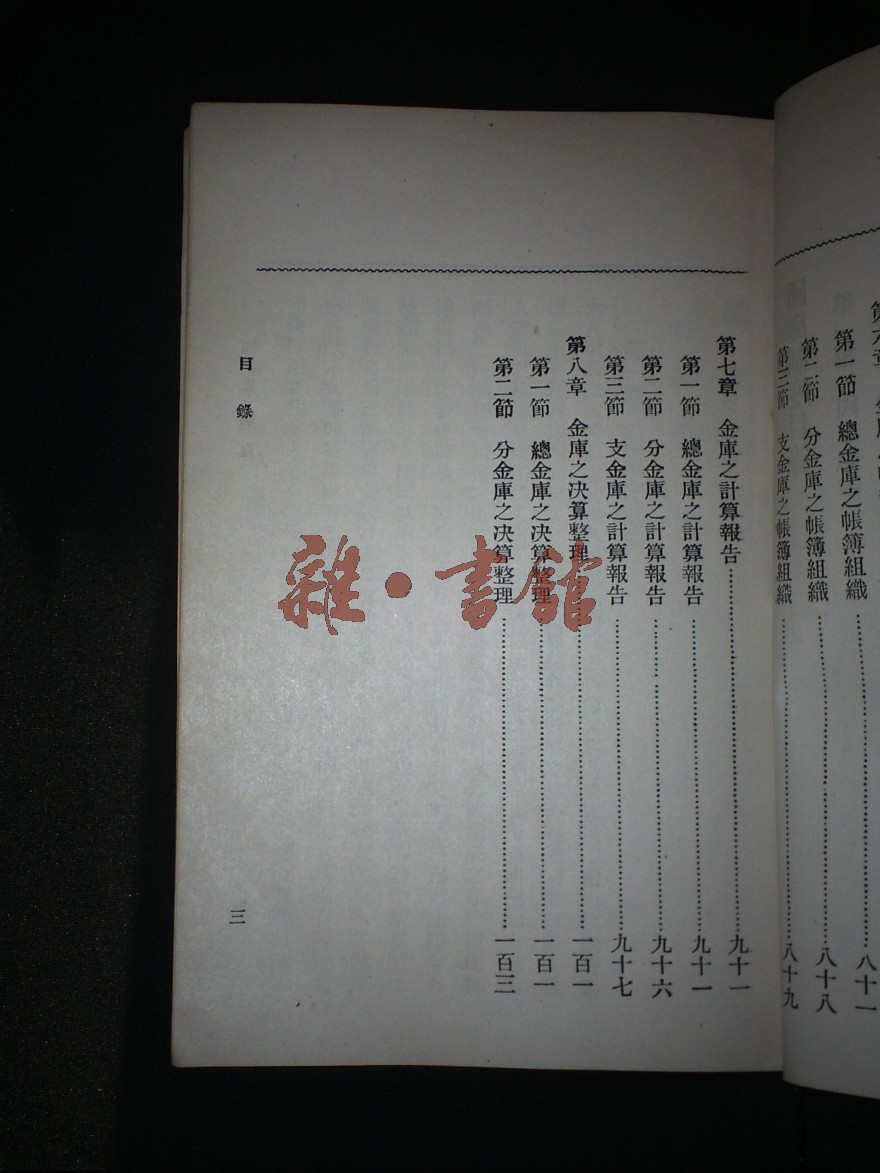 第一節 總金庫之帳簿組織………八十一
第二節 分金庫之帳簿組織………八十八
第三節 支金庫之帳簿組織………八十九
第七章 金庫之計算報告………九十一
第一節 總金庫之計算報告………九十一
第二節 分金庫之計算報告………九十六
第三節 支金庫之計算報告………九十七
第八章 金庫之决算整理………一百一
第一節 總金庫之决算整理………一百一
第二節 分金庫之决算整理………一百三
目錄
三
雜·書館